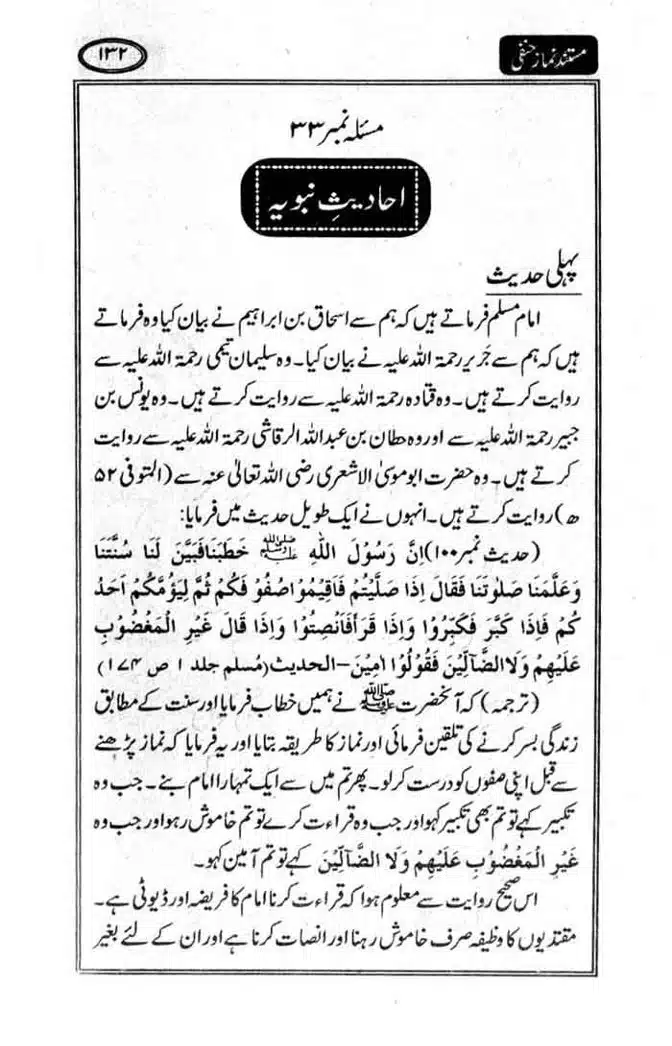 مستند نماز حنفی
۱۳۲
مسئلہ نمبر ۳۳
احادیثِ نبویہ
پہلی حدیث
امام مسلم فرماتے ہیں کہ ہم سے اسحاق بن ابراہیم نے بیان کیا وہ فرماتے
ہیں کہ ہم سے جَریر رحمۃ اللہ علیہ نے بیان کیا۔ وہ سلیمان تیمی رحمۃ اللہ علیہ سے
روایت کرتے ہیں۔ وہ قتادہ رحمۃ اللہ علیہ سے روایت کرتے ہیں۔ وہ یونس بن
جبیر رحمۃ اللہ علیہ سے اور وہ حطان بن عبد اللہ الرقاشی رحمۃ اللہ علیہ سے روایت
کرتے ہیں۔ وہ حضرت ابو موسیٰ الاشعری رضی اللہ تعالیٰ عنہ سے (المتوفی ۵۲
ھ) روایت کرتے ہیں۔ انہوں نے ایک طویل حدیث میں فرمایا:
(حدیث نمبر ۱۰۰) اِنَّ رَسُوْلَ اللهِ ﷺ خَطَبَنَا فَبَيَّنَ لَنَا سُنَّتَنَا
وَعَلَّمَنَا صَلٰوتَنَا فَقَالَ اِذَا صَلَّيْتُمْ فَاَقِيْمُوْا صُفُوْ فَكُمْ ثُمَّ لِيَؤُمَّكُمْ اَحَدُ
كُمْ فَاِذَا كَبَّرَ فَكَبِّرُوْا وَاِذَا قَرَأَ فَاَنْصِتُوْا وَاِذَا قَالَ غَيْرِ الْمَغْضُوْبِ
عَلَيْهِمْ وَلَا الضَّآلِّيْنَ فَقُوْلُوْا اٰمِيْنَ۔ الحديث (مُسلم جلد ۱ ص ۱۷۴)
(ترجمہ) کہ آنحضرت ﷺ نے ہمیں خطاب فرمایا اور سنت کے مطابق
زندگی بسر کرنے کی تلقین فرمائی اور نماز کا طریقہ بتایا اور یہ فرمایا کہ نماز پڑھنے
سے قبل اپنی صفوں کو درست کر لو۔ پھر تم میں سے ایک تمہارا امام بنے۔ جب وہ
تکبیر کہے تو تم بھی تکبیر کہو اور جب وہ قراءت کرے تو تم خاموش رہو اور جب وہ
غَيْرِ الْمَغْضُوْبِ عَلَيْهِمْ وَلَا الضَّآلِّيْنَ کہے تو تم آمین کہو۔
اس صحیح روایت سے معلوم ہوا کہ قراءت کرنا امام کا فریضہ اور ڈیوٹی ہے۔
مقتدیوں کا وظیفہ صرف خاموش رہنا اور انصات کرنا ہے اور ان کے لئے بغیر